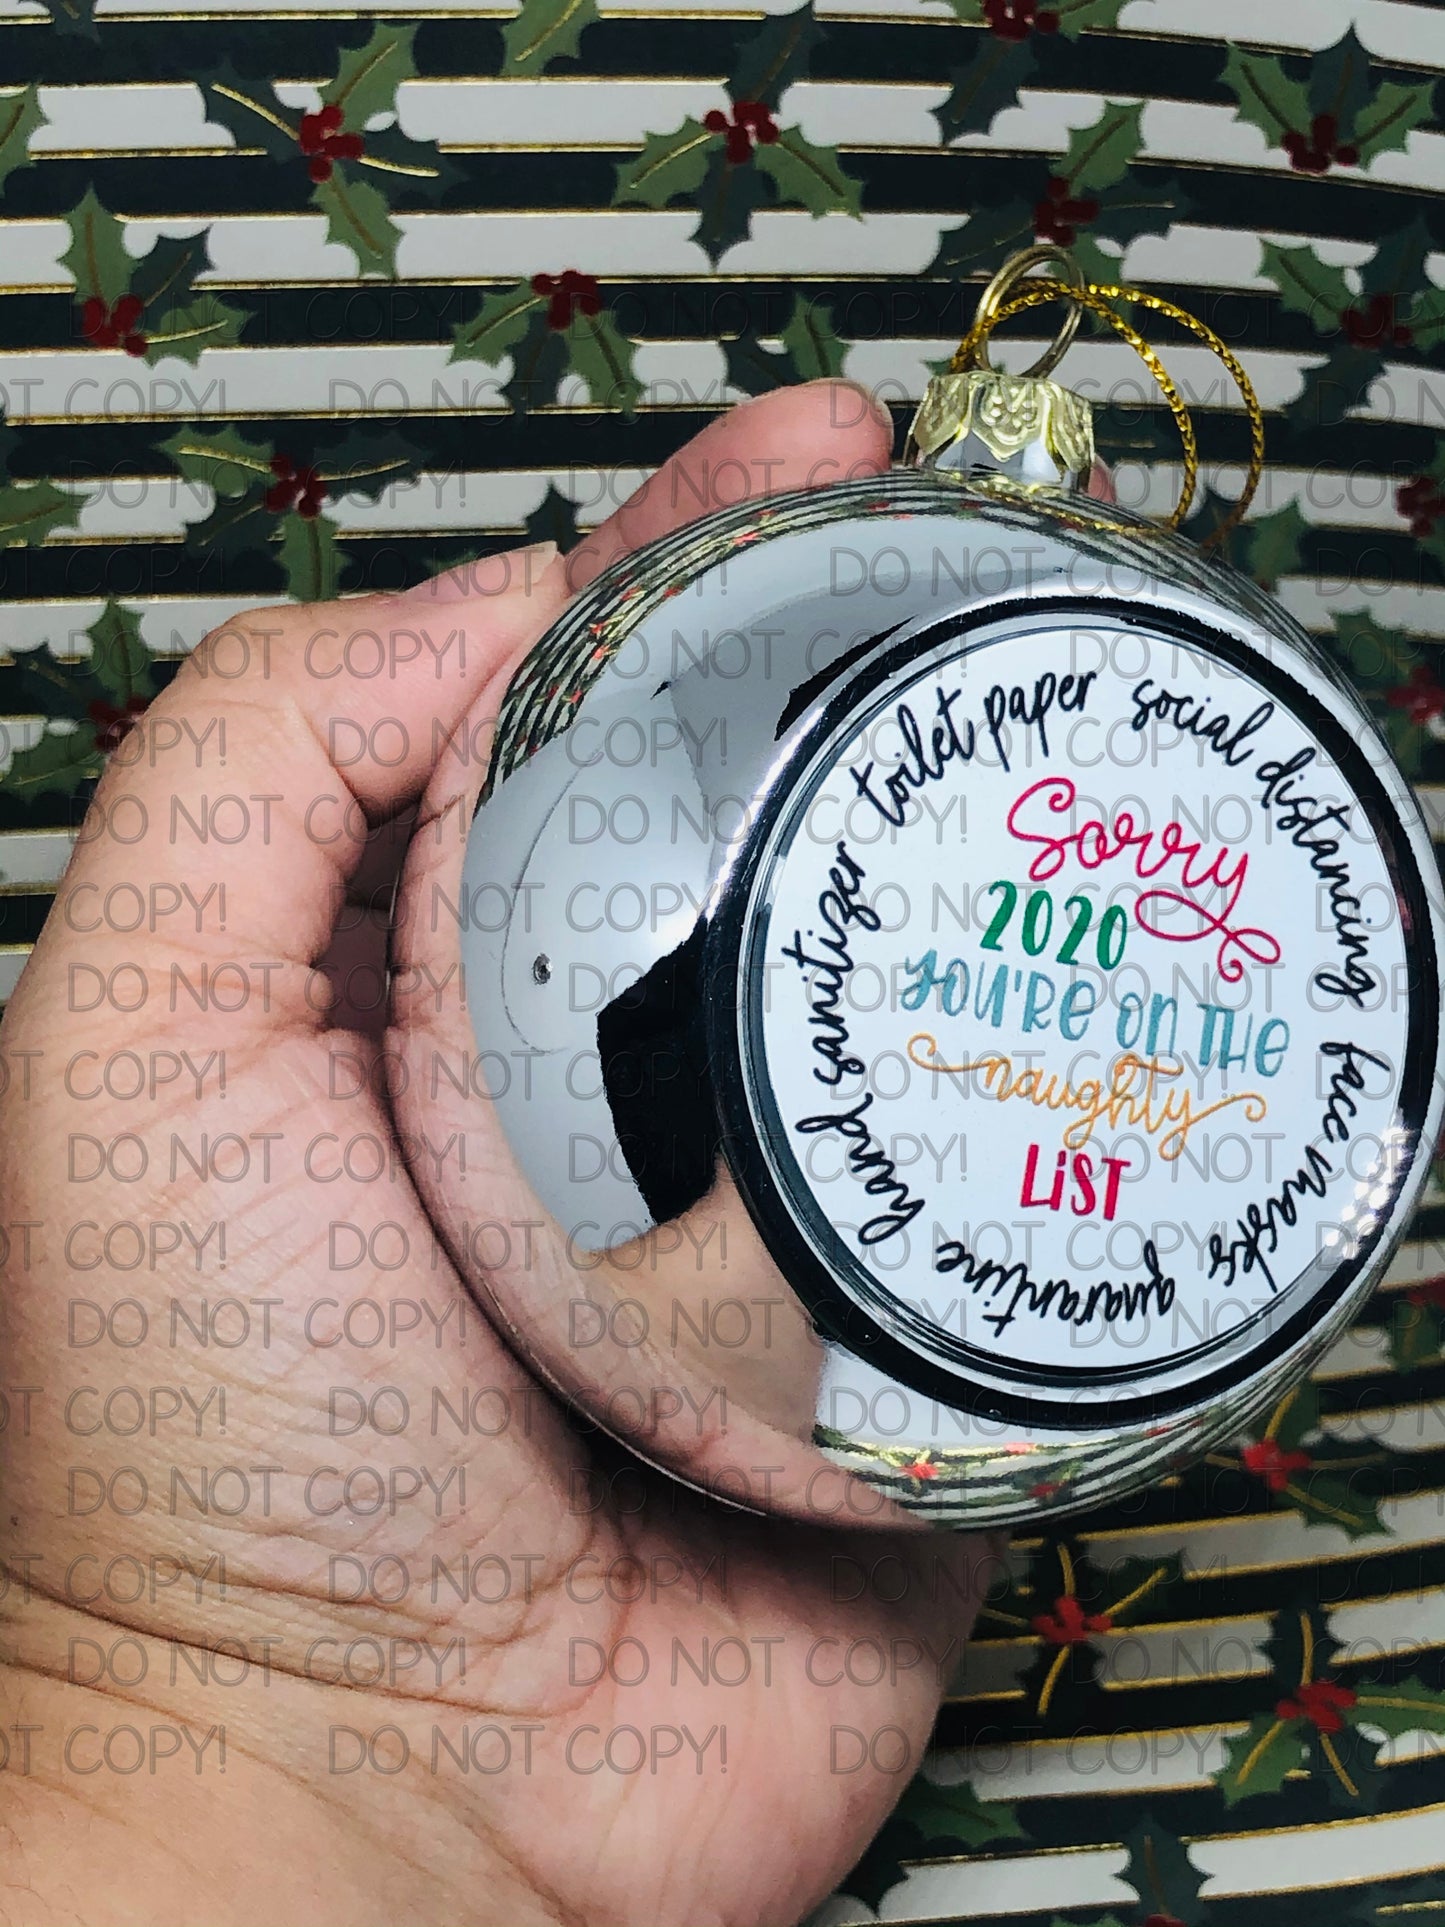 toilet paper social distancing face masks quarantine hand sanitizer
Sorry
2020
YOU'RE ON THE
naughty
LIST
DO NOT COPY!